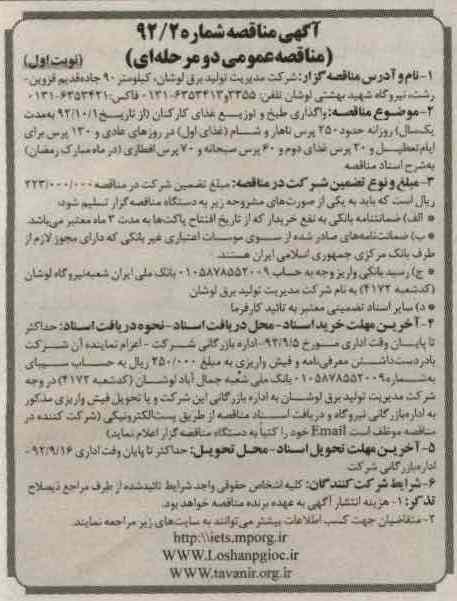 آگهی مناقصه شماره ۹۲/۲
(مناقصه عمومی دو مرحله‌ای) (نوبت اول)
۱-نام و آدرس مناقصه گزار: شرکت مدیریت تولید برق لوشان، کیلومتر ۹۰ جاده قدیم قزوین-
رشت، نیروگاه شهید بهشتی لوشان تلفن: ۳۳۵۵و۶۳۵۳۴۱۳-۰۱۳۱ فاکس: ۶۳۵۳۴۲۱-۰۱۳۱
۲-موضوع مناقصه: واگذاری طبخ و توزیع غذای کارکنان (از تاریخ ۹۲/۱۰/۱ به‌مدت
یک‌سال) روزانه حدود ۲۵۰ پرس ناهار و شام (غذای اول) در روزهای عادی و ۱۳۰ پرس برای
ایام تعطیل و ۲۰ پرس غذای دوم و ۶۰ پرس صبحانه و ۷۰ پرس افطاری (در ماه مبارک رمضان)
به‌شرح اسناد مناقصه
۳-مبلغ و نوع تضمین شرکت در مناقصه: مبلغ تضمین شرکت در مناقصه ۲۲۳/۰۰۰/۰۰۰
ریال است که باید به یکی از صورت‌های مشروحه زیر به دستگاه مناقصه گزار تسلیم شود:
• الف) ضمانتنامه بانکی به نفع خریدار که از تاریخ افتتاح پاکت‌ها به مدت ۳ ماه معتبر می‌باشد.
• ب) ضمانت‌نامه‌های صادر شده از سوی موسسات اعتباری غیر بانکی که دارای مجوز لازم از
طرف بانک مرکزی جمهوری اسلامی ایران هستند.
• ج) رسید بانکی واریز وجه به حساب ۰۱۰۵۸۷۸۵۵۲۰۰۹ بانک ملی ایران شعبه نیروگاه لوشان
(کد شعبه ۴۱۷۲) به نام شرکت مدیریت تولید برق لوشان
• د) سایر اسناد تضمینی معتبر به تائید کارفرما
۴-آخرین مهلت خرید اسناد- محل دریافت اسناد- نحوه دریافت اسناد: حداکثر
تا پایان وقت اداری مورخ ۹۲/۹/۵-اداره بازرگانی شرکت - اعزام نماینده آن شرکت
با در دست داشتن معرفی‌نامه و فیش واریزی به مبلغ ۲۵۰/۰۰۰ ریال به حساب سیبای
به‌شماره ۰۱۰۵۸۷۸۵۵۲۰۰۹ بانک ملی شعبه جمال آباد لوشان (کد شعبه ۴۱۷۲) در وجه
شرکت مدیریت تولید برق لوشان به اداره بازرگانی این شرکت و یا تحویل فیش واریزی مذکور
به اداره بازرگانی نیروگاه و دریافت اسناد مناقصه از طریق پست الکترونیکی (شرکت کننده در
مناقصه موظف است Email خود را کتباً به دستگاه مناقصه گزار اعلام نماید)
۵-آخرین مهلت تحویل اسناد- محل تحویل: حداکثر تا پایان وقت اداری ۹۲/۹/۱۶-
اداره بازرگانی شرکت
۶-شرایط شرکت کنندگان: کلیه اشخاص حقوقی واجد شرایط تائید شده از طرف مراجع ذیصلاح
تذکر: ۱- هزینه انتشار آگهی به عهده برنده مناقصه خواهد بود.
۲-متقاضیان جهت کسب اطلاعات بیشتر می‌توانند به سایت‌های زیر مراجعه نمایند.
http:\\iets.mporg.ir
WWW.Loshanpgioc.ir
WWW.tavanir.org.ir